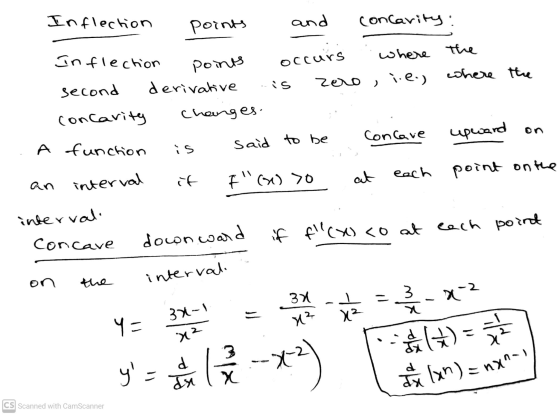 Inflection points and concavity:
Inflection points occurs where the
second derivative is zero, i.e., where the
concavity changes.
A function is said to be concave upward on
an interval if f''(x) > 0 at each point on the
interval.
Concave downward if f''(x) < 0 at each point
on the interval.
y = 3x-1/x² = 3x/x² - 1/x² = 3/x - x^-2
y' = d/dx (3/x - x^-2)
∵ d/dx (1/x) = -1/x²
d/dx (x^n) = nx^n-1
CS Scanned with CamScanner